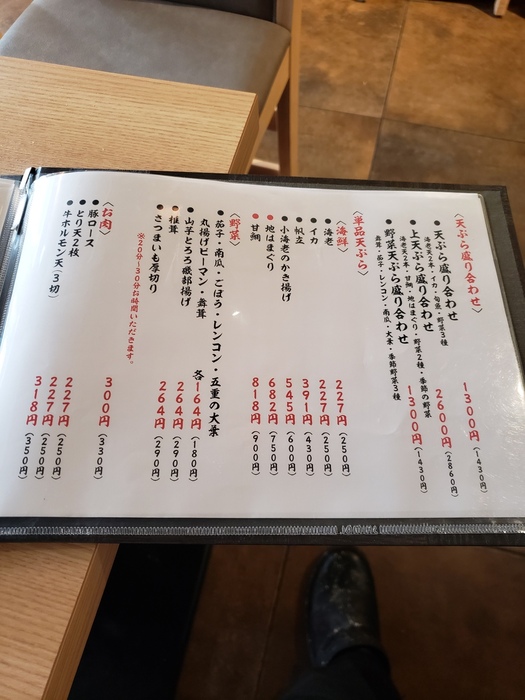 〈天ぷら盛り合わせ〉
●天ぷら盛り合わせ 1300円(1430円)
海老天2本・イカ・旬魚・野菜3種
●上天ぷら盛り合わせ 2600円(2860円)
海老天2本・甘鯛・地はまぐり・野菜2種・季節の野菜
●野菜天ぷら盛り合わせ 1300円(1430円)
舞茸・茄子・レンコン・南瓜・大葉・季節野菜3種
〈単品天ぷら〉
〈海鮮〉
●海老 227円(250円)
●イカ 227円(250円)
●帆立 391円(430円)
●小海老のかき揚げ 545円(600円)
●地はまぐり 682円(750円)
●甘鯛 818円(900円)
〈野菜〉
●茄子・南瓜・ごぼう・レンコン・五重の大葉
丸揚げピーマン・舞茸 各164円(180円)
●山芋とろろ磯部揚げ 264円(290円)
●椎茸 264円(290円)
●さつまいも厚切り 300円(330円)
※20分~30分お時間いただきます。
〈お肉〉
●豚ロース 227円(250円)
●とり天2枚 227円(250円)
●牛ホルモン天(3切) 318円(350円)